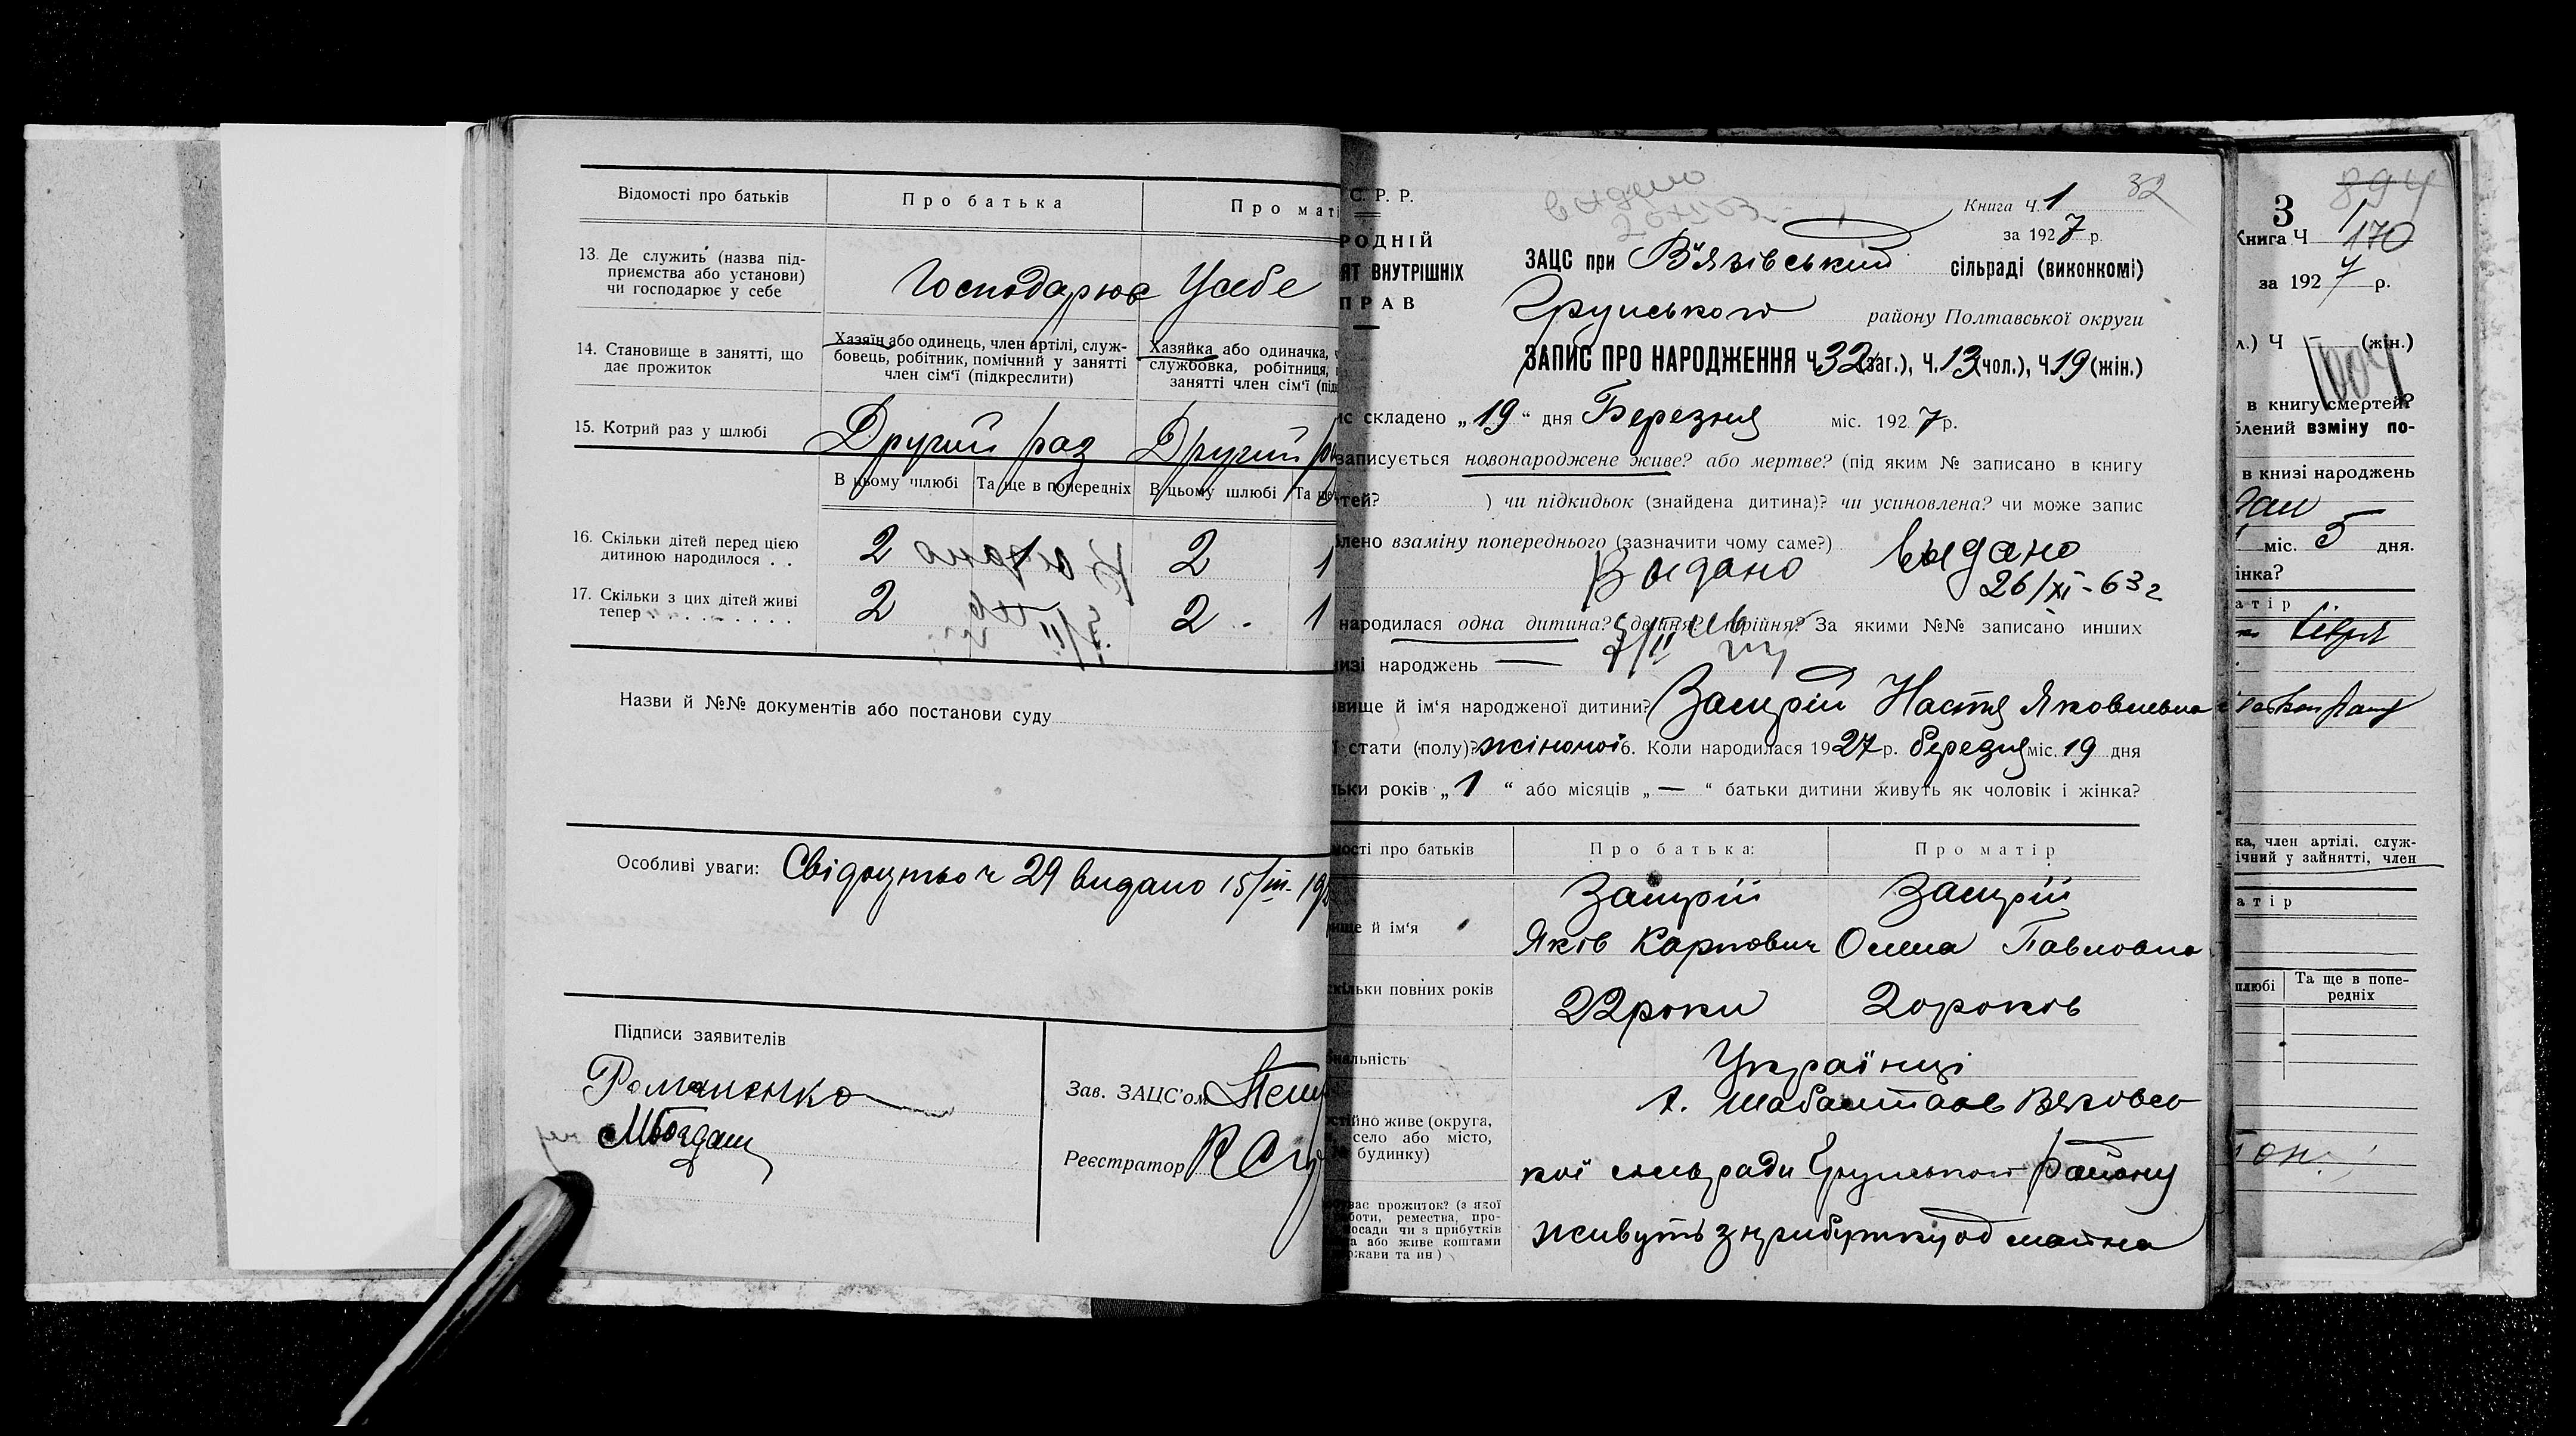 Відомості про батьків
Про батька
Про маті
13. Де служить (назва під-
приємства або установи)
чи господарює у себе
Господарює Усебе
14. Становище в занятті, що
дає прожиток
Хазяїн або одинець, член артілі, служ-
бовець, робітник, помічний у занятті
член сім'ї (підкреслити)
Хазяйка або одиначка,
службовка, робітниця,
занятті член сім'ї (під
15. Котрий раз у шлюбі
Другий раз Другий
В цьому шлюбі
Та ще в попередніх
В цьому шлюбі
Та ще
16. Скільки дітей перед цією
дитиною народилося . .
2 2 1
17. Скільки з цих дітей живі
тепер . . . . . . . . .
2 2 1
Назви й №№ документів або постанови суду
Особливі уваги: Свідоцтво ч 29 видано 15/III-19
Підписи заявителів
Романенко
МБогдан
Зав. ЗАЦС'ом
Реєстратор
С. Р. Р.
РОДНІЙ
ЯТ ВНУТРІШНІХ
ПРАВ
видано
32
Книга Ч. 1
за 1927 р.
ЗАЦС при Вязівській сільраді (виконкомі)
Грунського району Полтавської округи
ЗАПИС ПРО НАРОДЖЕННЯ Ч. 32 (заг.), Ч. 13 (чол.), Ч. 19 (жін.)
ис складено „19“ дня Березня міс. 1927 р.
записується новонароджене живе? або мертве? (під яким № записано в книгу
тей? ) чи підкидьок (знайдена дитина)? чи усиновлена? чи може запис
лено взаміну попереднього (зазначити чому саме?)
Выдано
выдано
26/XI-63 г
народилася одна дитина? двійня? трійня? За якими №№ записано инших
изі народжень —
звище й ім'я народженої дитини? Зацрій Настя Яковлевна
ї стати (полу)? жіночої 6. Коли народилася 1927 р. березня міс. 19 дня
льки років „1“ або місяців „—“ батьки дитини живуть як чоловік і жінка?
мості про батьків
Про батька:
Про матір
ище й ім'я
Зацрій
Яків Карпович
Зацрій
Олена Павловна
кільки повних років
22 роки
20 років
нальність
Українці
стійно живе (округа,
село або місто,
будинку)
х. Шабалтаєв Вязовсь
кої сільради Грунського району
ває прожиток? (з якої
боти, ремества, про-
посади чи з прибутків
а або живе коштами
ржави та ин)
живуть з прибутку од майна
3
894
Книга Ч 1
170
за 1927 р.
л.) Ч — (жін.)
1004
в книгу смертей?
блений взміну по-
в книзі народжень
міс. 5 дня.
інка?
атір
ка, член артілі, служ-
ічний у зайнятті, член
атір
шлюбі
Та ще в попе-
редніх